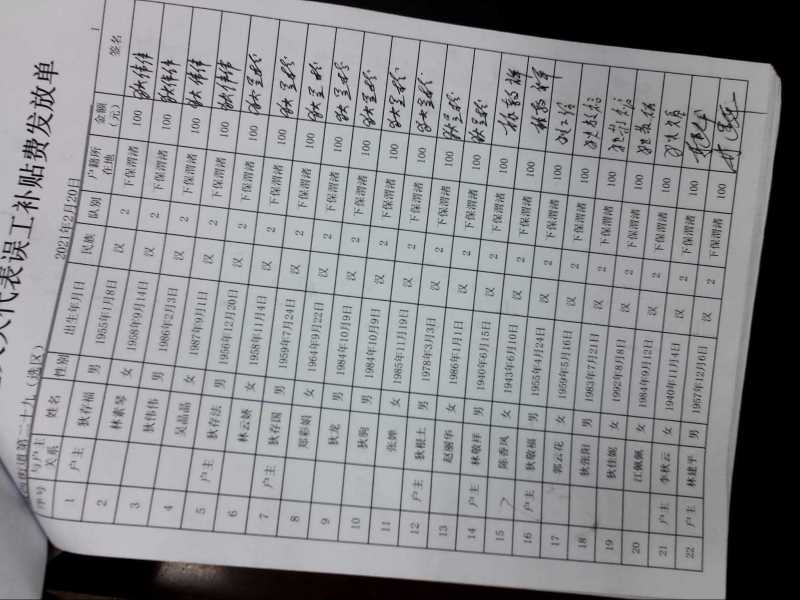 人大代表误工补贴费发放单
街道第二十九（选区） 2021年2月20日
序号 与户主关系 姓名 性别 出生年月日 民族 队别 户籍所在地 金额（元） 签名
1 户主 狄存福 男 1955年1月8日 汉 2 下保渭渚 100 狄伟伟
2 林素琴 女 1958年9月14日 汉 2 下保渭渚 100 狄伟伟
3 狄伟伟 男 1986年2月3日 汉 2 下保渭渚 100 狄伟伟
4 吴晶晶 女 1987年9月1日 汉 2 下保渭渚 100 狄伟伟
5 户主 狄存法 男 1956年12月20日 汉 2 下保渭渚 100
6 林云娇 女 1958年11月4日 汉 2 下保渭渚 100
7 户主 狄存国 男 1959年7月24日 汉 2 下保渭渚 100
8 郑彩娟 女 1964年9月22日 汉 2 下保渭渚 100
9 狄龙 男 1984年10月9日 汉 2 下保渭渚 100
10 狄驹 男 1984年10月9日 汉 2 下保渭渚 100
11 张婵 女 1985年11月19日 汉 2 下保渭渚 100
12 户主 狄根土 男 1978年3月3日 汉 2 下保渭渚 100
13 赵丽华 女 1986年1月1日 汉 2 下保渭渚 100
14 户主 林敬祥 男 1940年6月15日 汉 2 下保渭渚 100
15 陈香凤 女 1943年6月10日 汉 2 下保渭渚 100
16 户主 狄敬福 男 1955年4月24日 汉 2 下保渭渚 100
17 郭云花 女 1959年5月16日 汉 2 下保渭渚 100
18 狄张阳 男 1983年7月21日 汉 2 下保渭渚 100
19 狄佳妮 女 1992年8月8日 汉 2 下保渭渚 100
20 江佩佩 女 1984年9月12日 汉 2 下保渭渚 100
21 户主 李秋云 女 1940年11月4日 汉 2 下保渭渚 100
22 户主 林建平 男 1957年12月6日 汉 2 下保渭渚 100